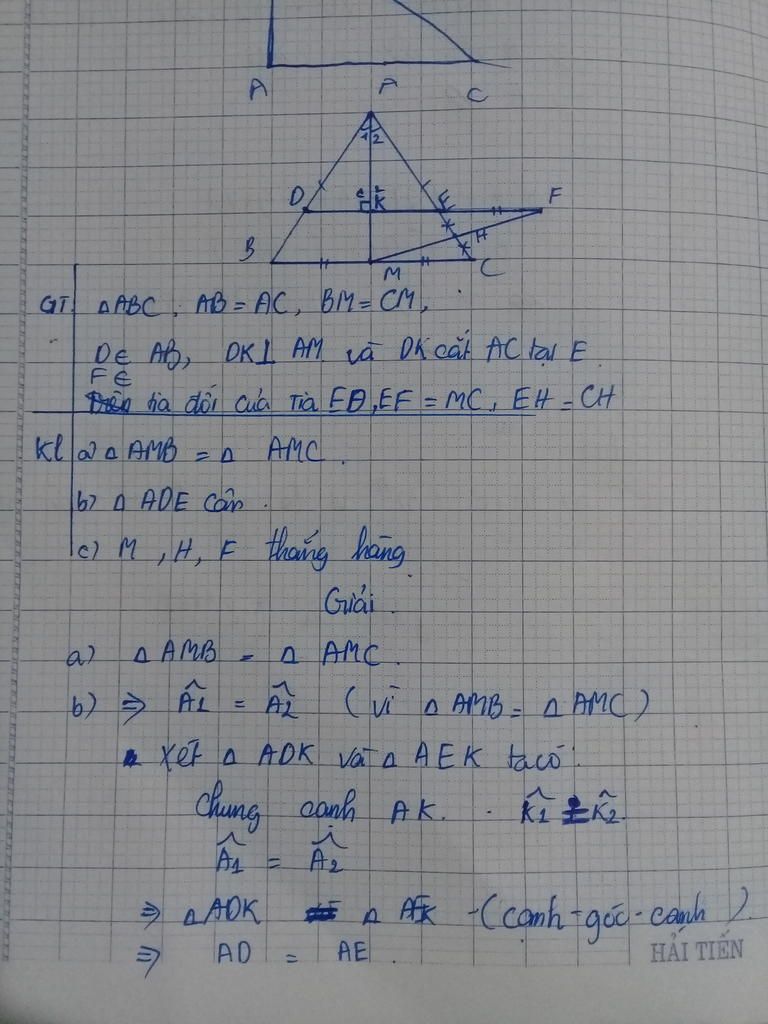 A C
A
1 2
D K E F
H
B M C
GT ΔABC, AB = AC, BM = CM,
D ∈ AB, DK ⊥ AM và DK cắt AC tại E
F ∈
tia đối của tia ED, EF = MC, EH = CH
Kl a) Δ AMB = Δ AMC.
b) Δ ADE cân.
c) M, H, F thẳng hàng
Giải.
a) Δ AMB = Δ AMC.
b) ⇒ Â1 = Â2 (vì Δ AMB = Δ AMC)
Xét Δ ADK và Δ AEK ta có:
Chung cạnh AK. K̂1 = K̂2.
Â1 = Â2
⇒ Δ ADK Δ AEK (cạnh-góc-cạnh)
⇒ AD = AE.
HẢI TIẾN